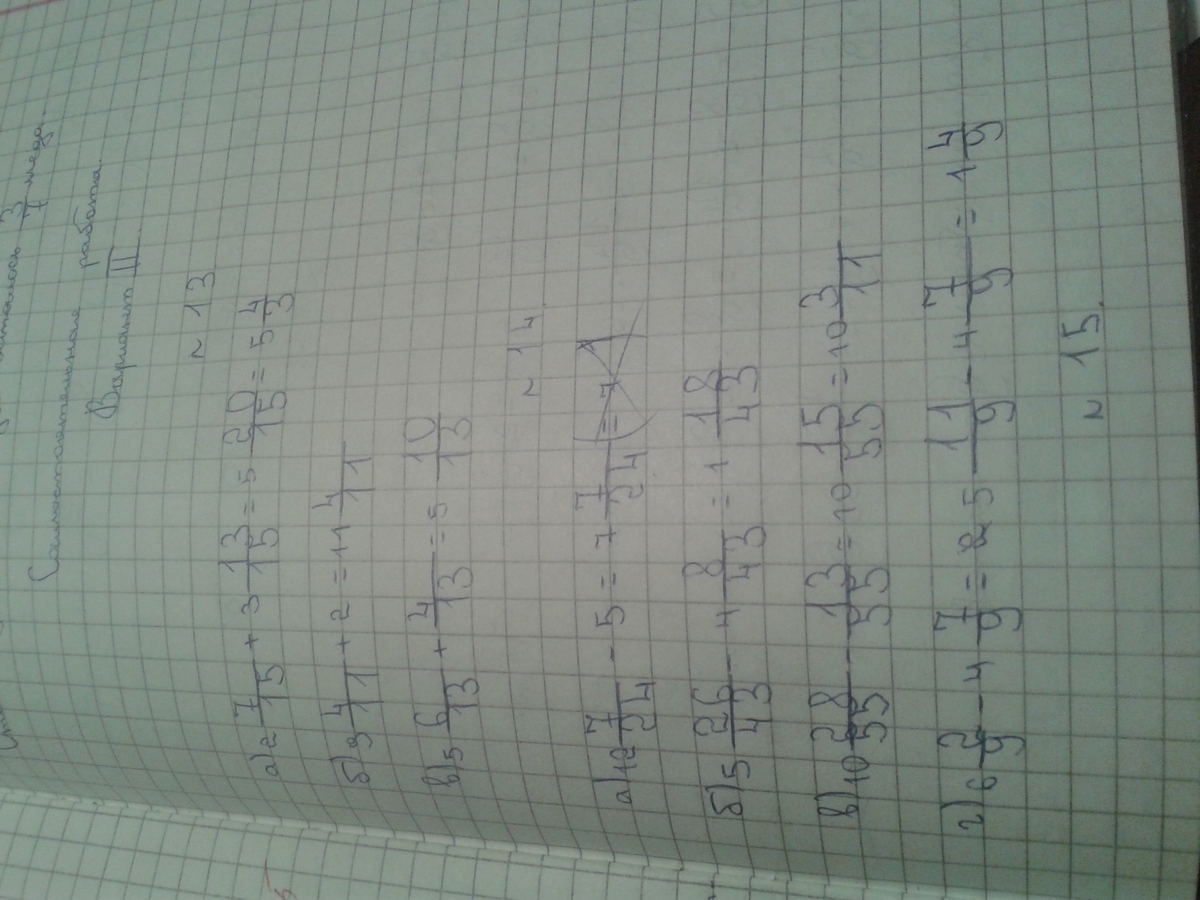 осталось 3/7 меда.
Самостоятельная работа
Вариант II.
~ 13
а) 2 7/15 + 3 13/15 = 5 20/15 = 5 4/3
б) 9 4/11 + 2 = 11 4/11
в) 5 6/13 + 4/13 = 5 10/13
~ 14.
а) 12 7/24 - 5 = 7 7/24
б) 5 26/43 - 4 8/43 = 1 18/43
в) 10 28/55 - 13/55 = 10 15/55 = 10 3/11
г) 6 2/9 - 4 7/9 = 5 11/9 - 4 7/9 = 1 4/9
~ 15.